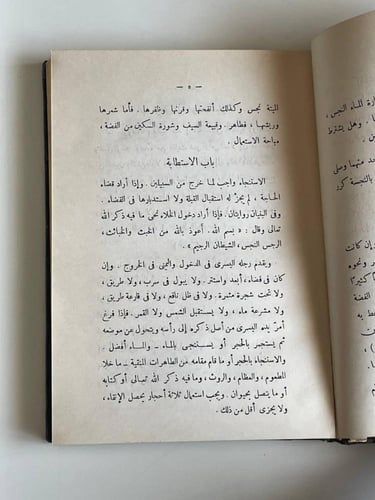 — ٥ —
الميتة نجس وكذلك أنفحتها وقرنها وظفرها. فأما شعرها
وريشها، فطاهر. وقبيعة السيف وشعيرة السكين من الفضة،
مباحة الاستعمال.
باب الاستطابة
الاستنجاء واجب لما خرج من السبيلين. وإذا أراد قضاء
الحاجة، لم يجز له استقبال القبلة ولا استدبارها فى الفضاء.
وفى البنيان روايتان. فإذا أراد دخول الخلاء نحى ما فيه ذكر الله
تعالى وقال: « بسم الله. أعوذ بالله من الخبث والخبائث،
الرجس النجس، الشيطان الرجيم ».
ويقدم رجله اليسرى فى الدخول واليمنى فى الخروج. وإن
كان فى فضاء، أبعد واستتر. ولا يبول فى سرب، ولا طريق،
ولا تحت شجرة مثمرة. ولا فى ظل نافع، ولا فى قارعة طريق،
ولا مشرعة ماء، ولا يستقبل الشمس ولا القمر. فإذا فرغ
أمرّ يده اليسرى من أصل ذكره إلى رأسه ويتحول عن موضعه
ثم يستجمر بالحجر أو يستنجى بالماء - والماء أفضل.
والاستنجاء بالحجر أو ما قام مقامه من الطاهرات المنقية - ما خلا
الطعوم، والعظام، والروث، وما فيه ذكر الله تعالى أو كتابه
أو ما يتصل بحيوان. ويجب استعمال ثلاثة أحجار يحصل الإنقاء،
ولا يجزى أقل من ذلك.
رة الماء النجس،
وهل يشترط
منهما وصلى
بالنجسة كرر
كانت
ونحوه
كثيرا
الفضة